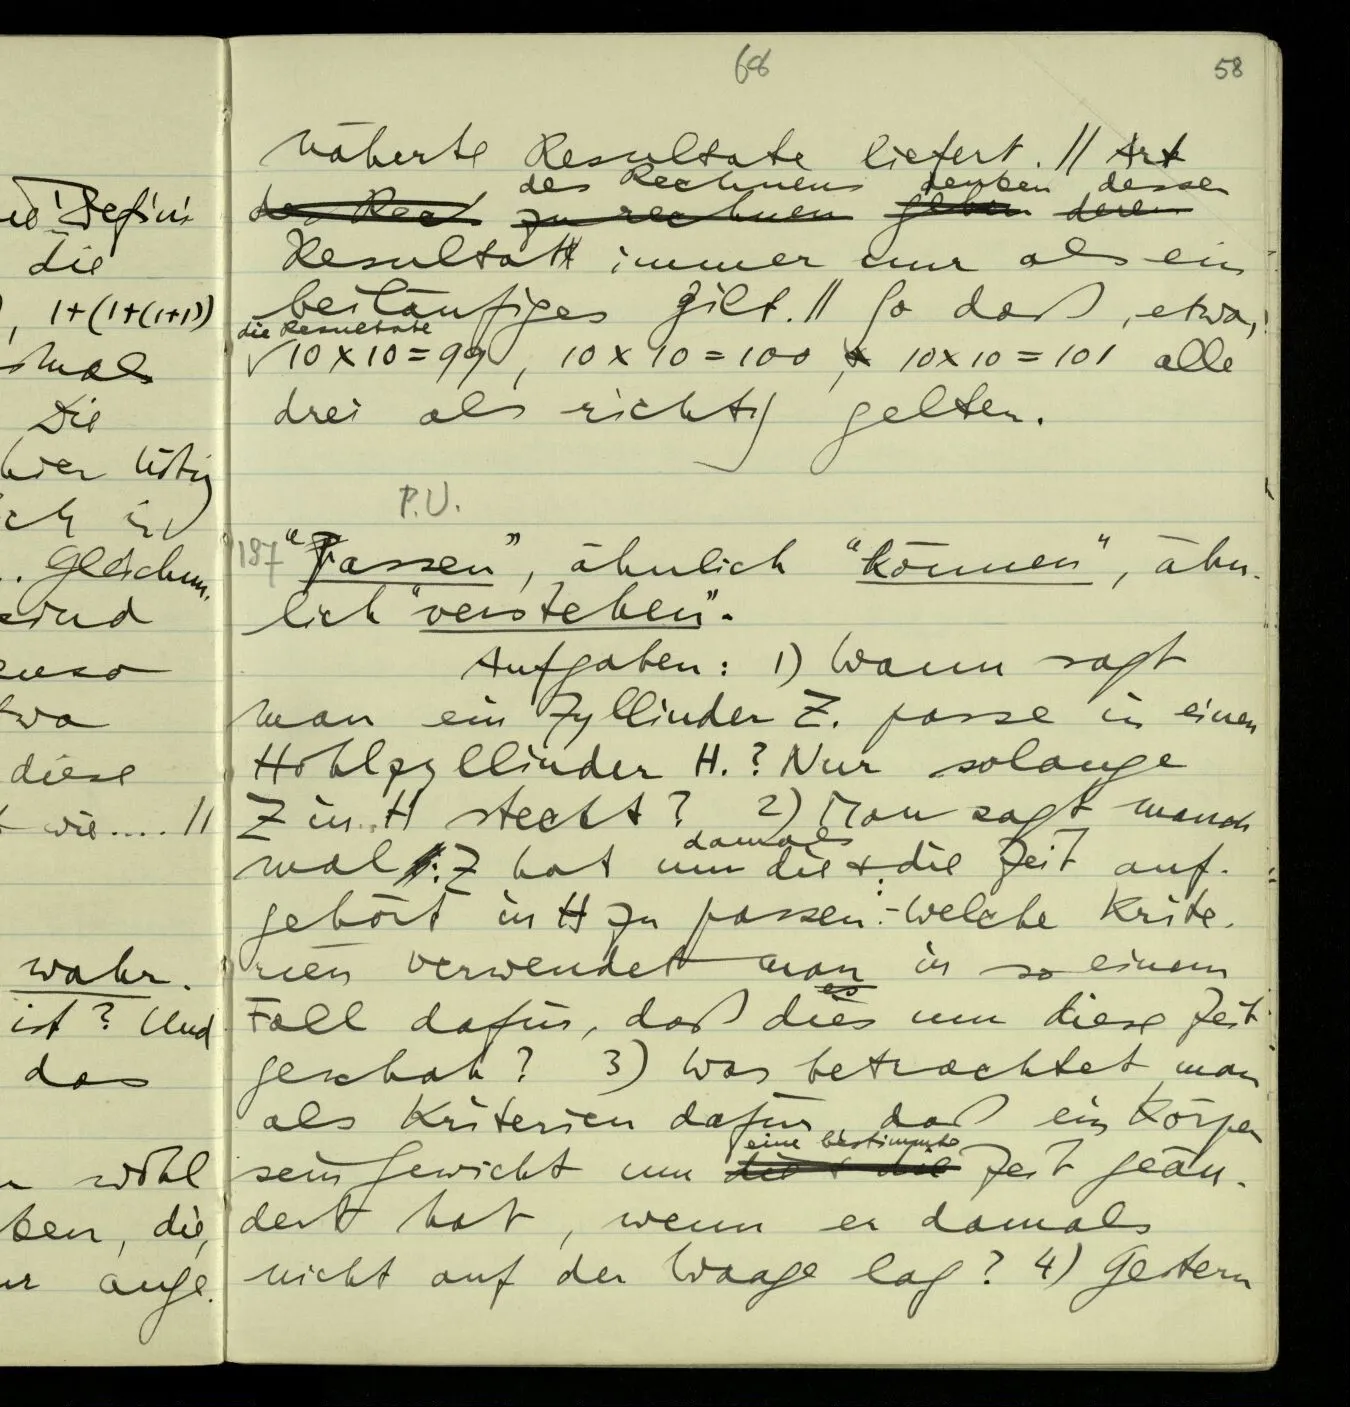 68
58
näherte Resultate liefert. // Art
des Rechnens denken dessen
des Rech zu rechnen geben deren
Resultat immer nur als ein
beiläufiges gilt. // So daß, etwa,
die Resultate
10 x 10 = 99, 10 x 10 = 100, 10 x 10 = 101 alle
drei als richtig gelten.
P.U.
187 "Passen", ähnlich "können", ähn-
lich "verstehen".
Aufgaben: 1) Wann sagt
man ein Zyllinder Z. passe in einen
Hohlzyllinder H.? Nur solange
Z in H steckt? 2) Man sagt manch
damals
mal: Z hat um die & die Zeit auf-
gehört in H zu passen.- Welche Krite-
rien verwendet man in so einem
es
Fall dafür, daß dies um diese Zeit
geschah? 3) Was betrachtet man
als Kriterien dafür daß ein Körper
eine bestimmte
sein Gewicht um die & die Zeit geän-
dert hat, wenn er damals
nicht auf der Waage lag? 4) Gestern
die
, 1+(1+(1+1))
Die
hier
sind
etwa
diese
wie.... //
wahr.
ist? Und
das
wohl
die,